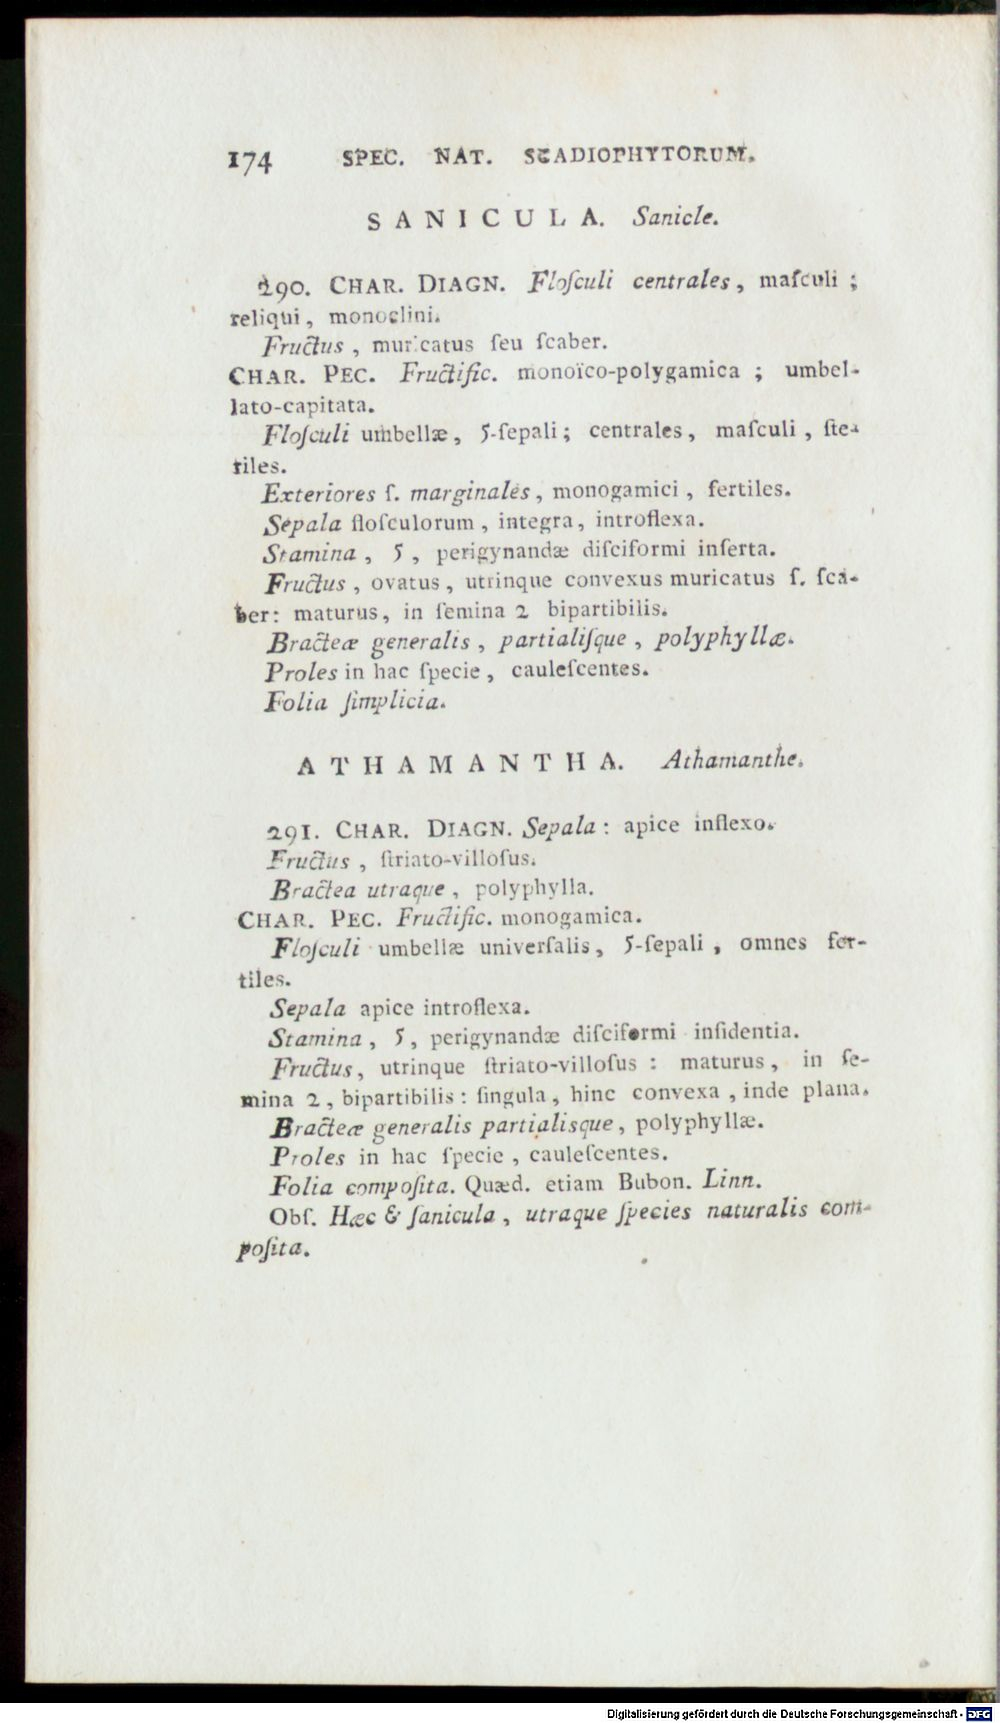 174 SPEC. NAT. SCADIOPHYTORUM.
SANICULA. Sanicle.
290. CHAR. DIAGN. Floſculi centrales, maſculi ;
reliqui, monoclini.
Fructus, muricatus ſeu ſcaber.
CHAR. PEC. Fructific. monoïco-polygamica ; umbel-
lato-capitata.
Floſculi umbellæ, 5-ſepali ; centrales, maſculi, ſte-
riles.
Exteriores ſ. marginales, monogamici, fertiles.
Sepala floſculorum, integra, introflexa.
Stamina, 5, perigynandæ diſciformi inſerta.
Fructus, ovatus, utrinque convexus muricatus ſ. ſca-
ber : maturus, in ſemina 2 bipartibilis.
Bracteæ generalis, partialiſque, polyphyllæ.
Proles in hac ſpecie, cauleſcentes.
Folia ſimplicia.
ATHAMANTHA. Athamanthe.
291. CHAR. DIAGN. Sepala : apice inflexo.
Fructus, ſtriato-villoſus.
Bractea utraque, polyphylla.
CHAR. PEC. Fructific. monogamica.
Floſculi umbellæ univerſalis, 5-ſepali, omnes fer-
tiles.
Sepala apice introflexa.
Stamina, 5, perigynandæ diſciformi inſidentia.
Fructus, utrinque ſtriato-villoſus : maturus, in ſe-
mina 2, bipartibilis : ſingula, hinc convexa, inde plana.
Bracteæ generalis partialisque, polyphyllæ.
Proles in hac ſpecie, cauleſcentes.
Folia compoſita. Quæd. etiam Bubon. Linn.
Obſ. Hæc & ſanicula, utraque ſpecies naturalis com-
poſita.
Digitalisierung gefördert durch die Deutsche Forschungsgemeinschaft - DFG